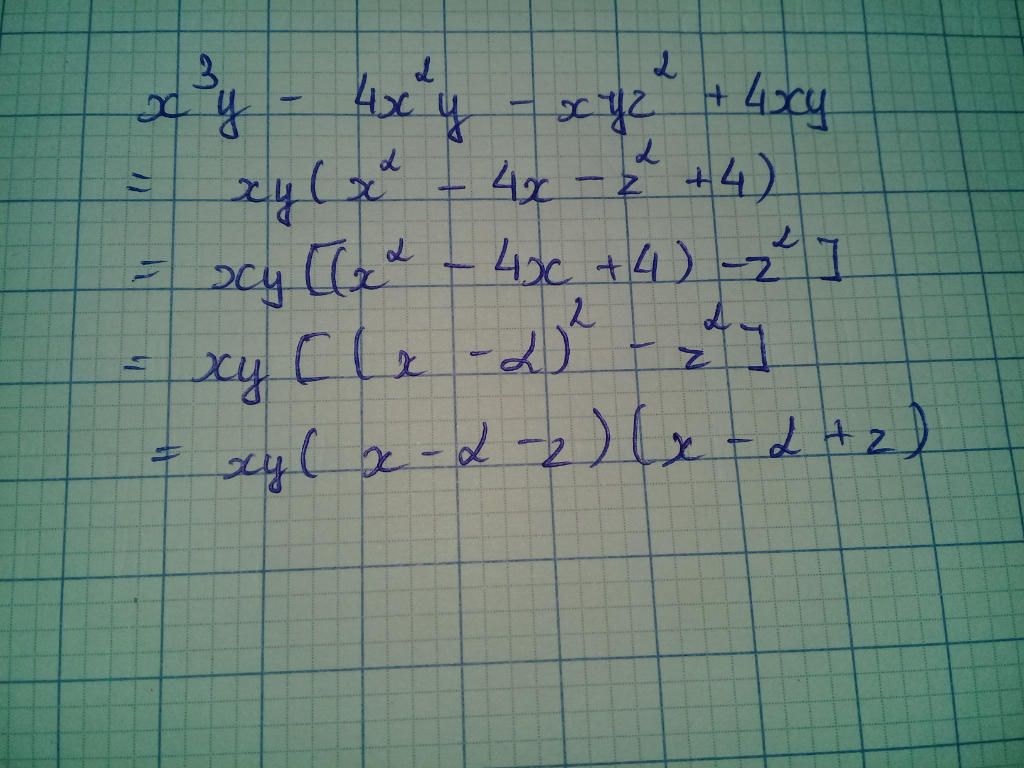 x³y - 4x²y - xyz² + 4xy
= xy(x² - 4x - z² + 4)
= xy[(x² - 4x + 4) - z²]
= xy[(x - 2)² - z²]
= xy(x - 2 - z)(x - 2 + z)